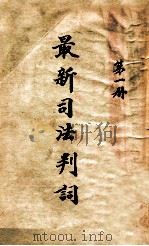 第一册
最新司法判詞
mtoou.info